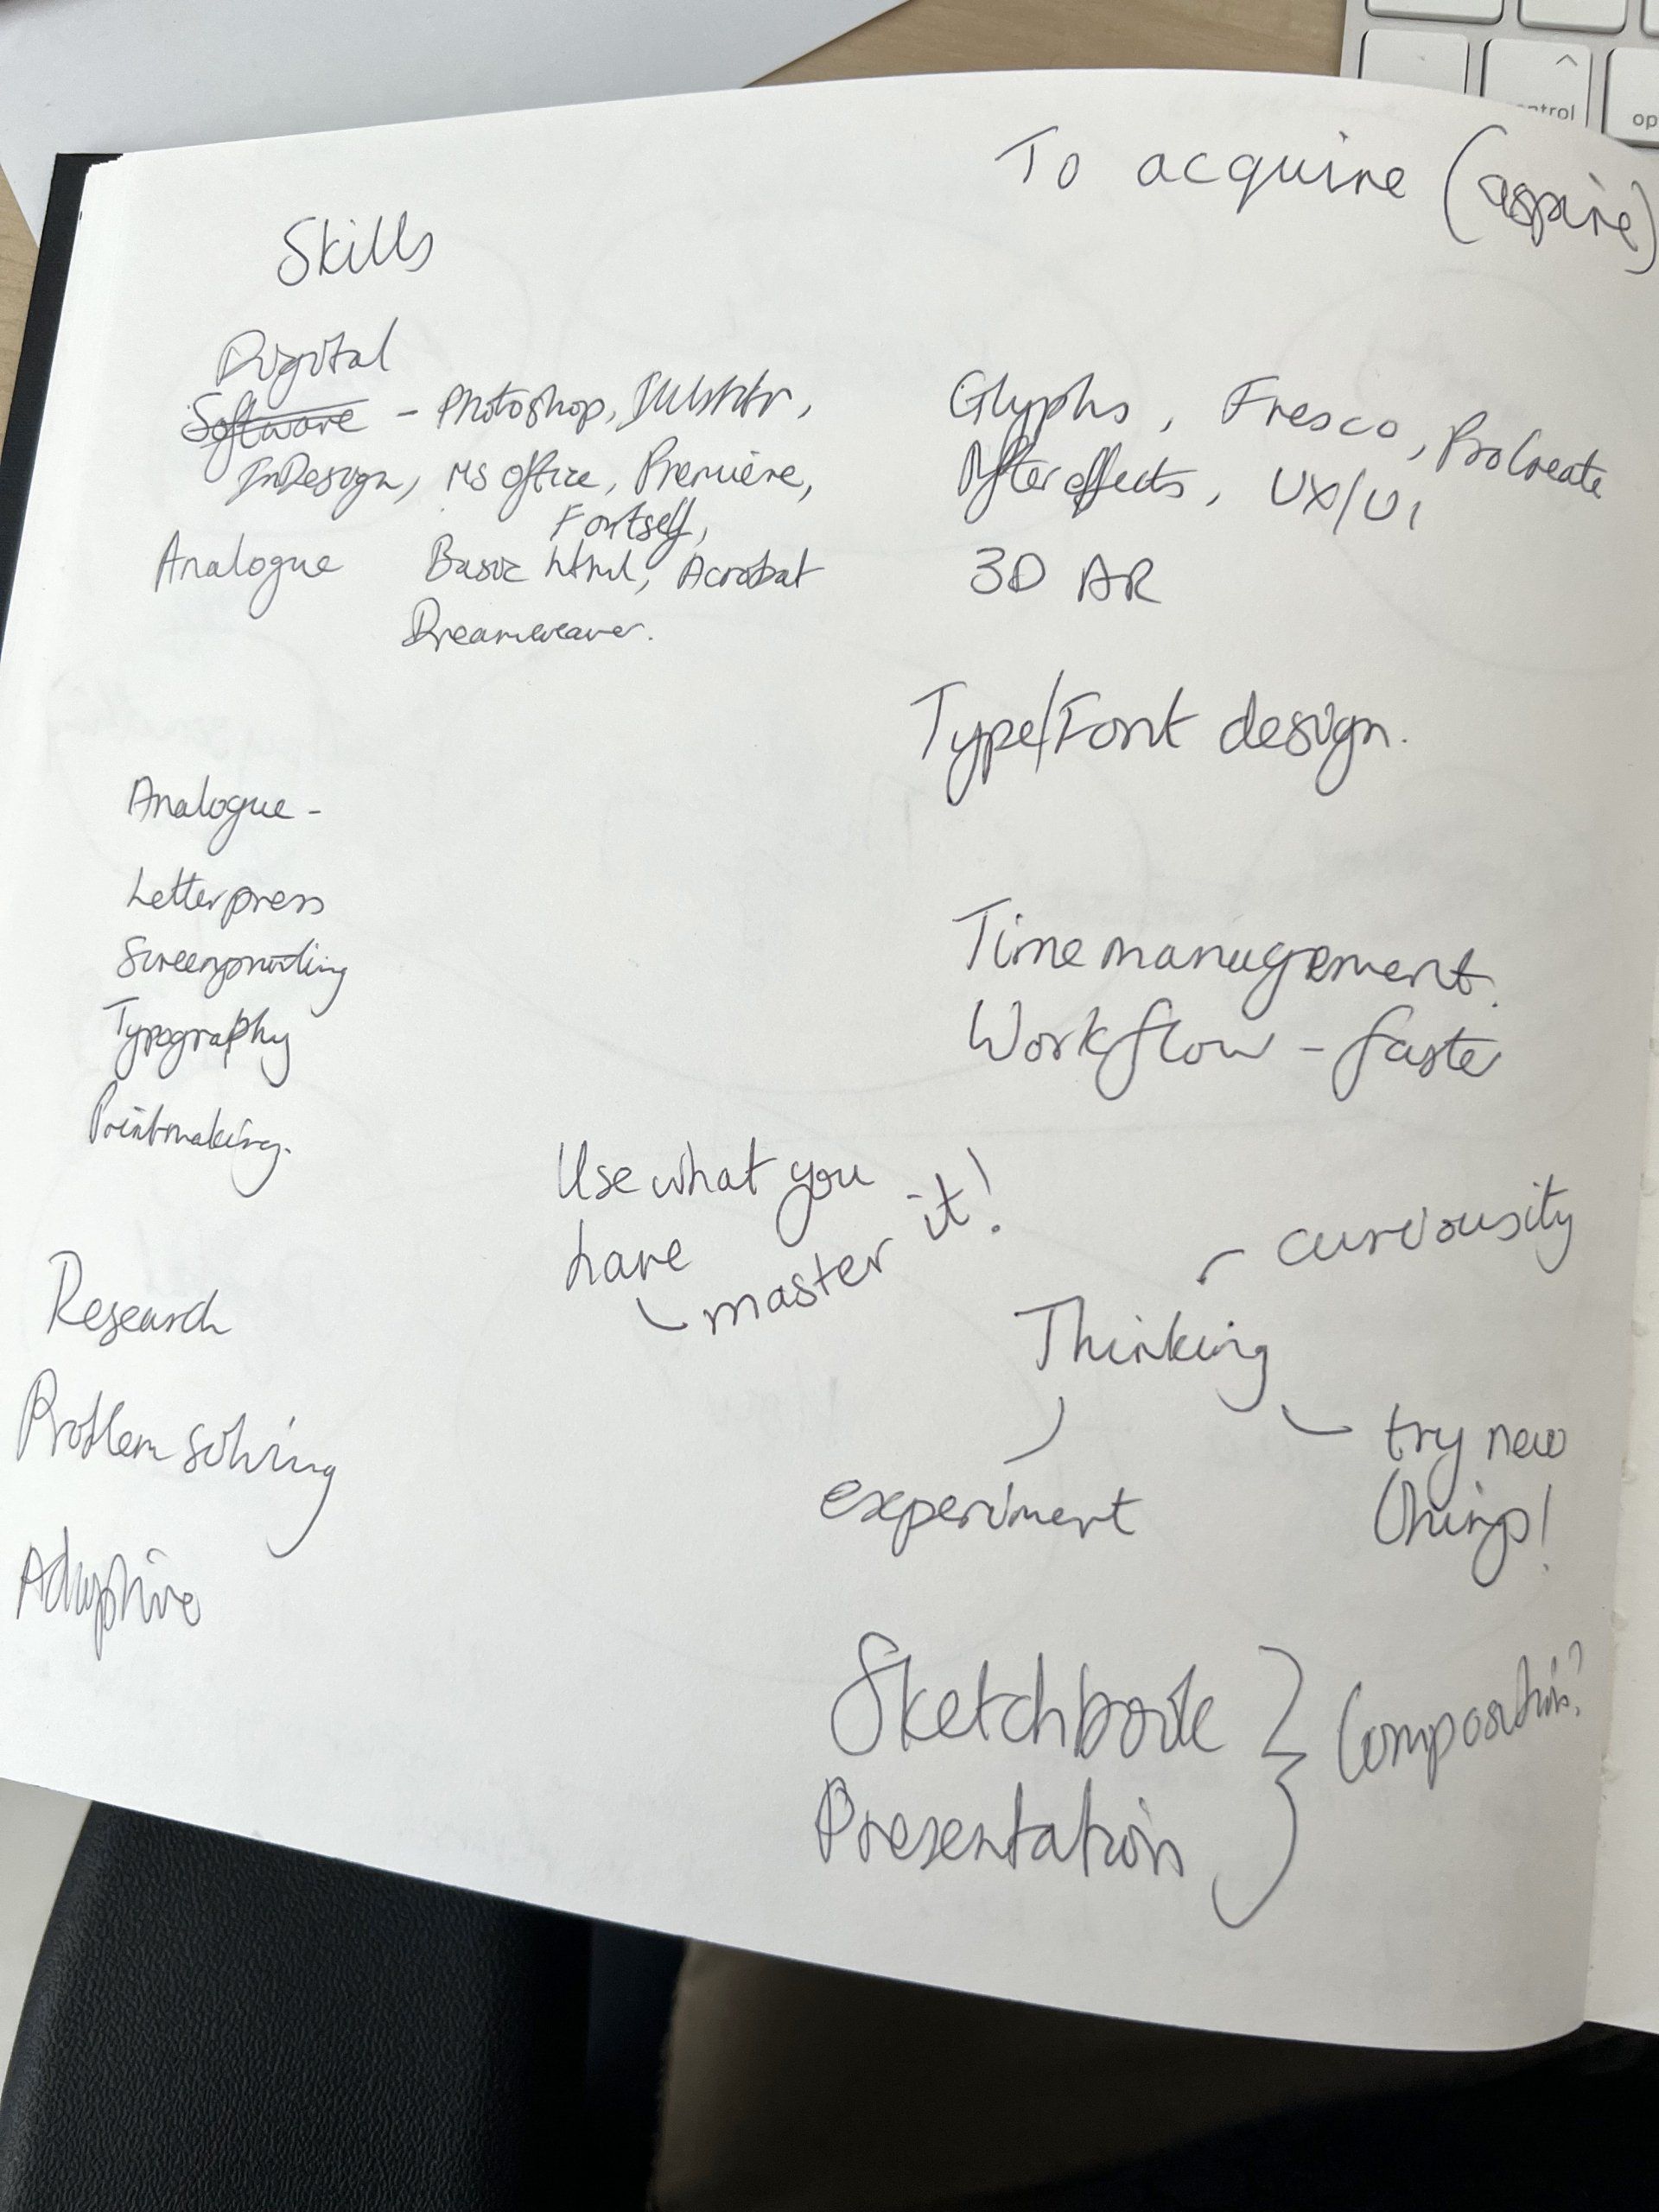 To acquire (aspire)
Skills
Digital
Software - Photoshop, Illustrator,
InDesign, MS Office, Premiere,
Fontself,
Analogue Basic html, Acrobat
Dreamweaver.
Glyphs, Fresco, ProCreate
After effects, UX/UI
3D AR
Type/Font design.
Analogue -
Letterpress
Screenprinting
Typography
Printmaking.
Time management.
Workflow - faster
Use what you
have
master it!
Research
Problem solving
Adaptive
curiousity
Thinking
experiment
try new
things!
Sketchbook
Presentation
Composition?
control
op